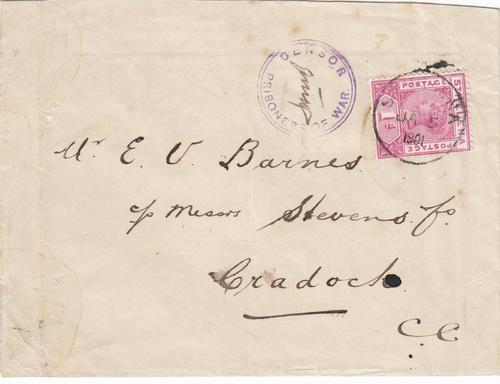 CENSOR
PRISONERS OF WAR
POSTAGE
POSTAGE
JA
1901
Mr E. V. Barnes
c/o Messrs Stevens
Cradock
C.C.